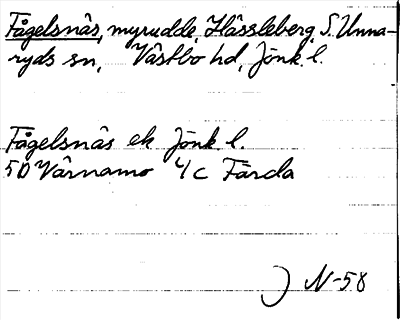 Fågelsnäs, myrudde, Hässleberg, S. Unna-
ryds sn, Västbo hd, Jönk. l.
Fågelsnäs ek Jönk. l.
5D Värnamo 4/c Färda
N-58